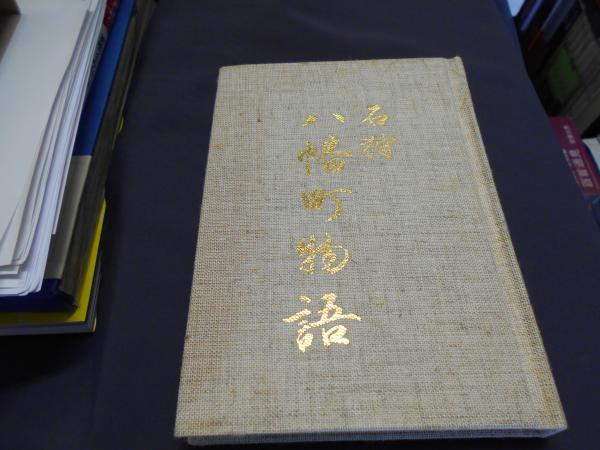 石狩
八幡町物語